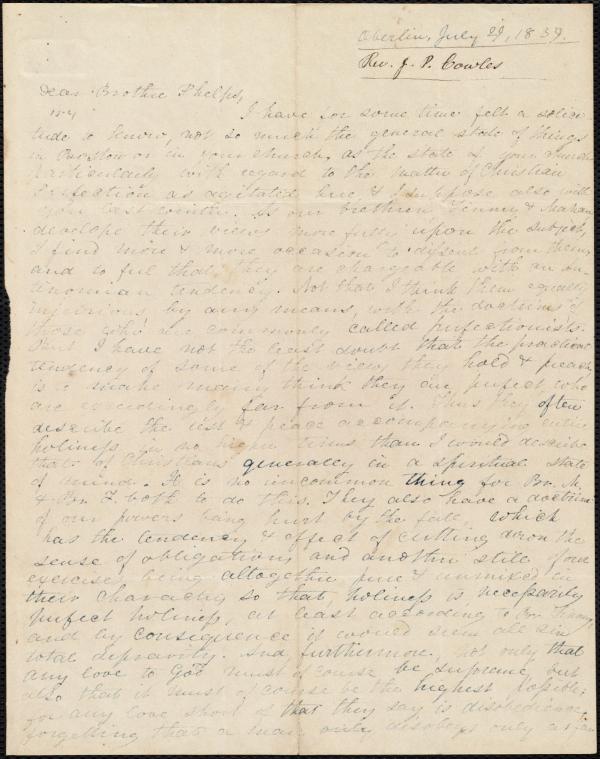 Oberlin, July 29, 1839.
Rev. J. P. Cowles
Dear Brother Phelps,
I have for some time felt a solici
tude to know, not so much the general state of things
in Boston or in your church, as the state of your church
particularly with regard to the matter of Christian
Perfection as agitated here & I suppose also with
you last winter. As our brethren Finney & Mahan
develope their views more fully upon the subject,
I find more & more occasion to dissent from them,
and to feel that they are chargeable with an an
tinomian tendency. Not that I think them equally
injurious, by any means, with the doctrines of
those who are commonly called perfectionists.
But I have not the least doubt that the practical
tendency of some of the views they hold & preach
is to make many think they are perfect who
are exceedingly far from it. Thus they often
describe the rest & peace accompanying entire
holiness in no higher terms than I would describe
that of Christians generally in a spiritual state
of mind. It is no uncommon thing for Br. M.
& Br. F. both to do this. They also have a doctrine
of our powers being hurt by the fall, which
has the tendency & effect of cutting down the
sense of obligation, and another still of our
exercises being altogether pure & unmixed in
their character, so that holiness is necessarily
perfect holiness, at least according to Br. Finney
and by consequence it would seem all sin
total depravity. And furthermore, not only that
any love to God must of course be supreme, but
also that it must of course be the highest possible;
for any love short of that they say is disobedience,
forgetting that a man only disobeys only as far